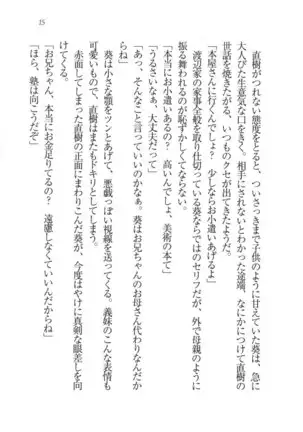 15
直樹がつれない態度をとると、ついさっきまで子供のように甘えていた葵は、急に
大人びた生意気な口をきく。相手にされないとわかった途端、なにかにつけて直樹の
世話を焼きたがる、いつものクセが出てきたようだ。
「本屋さんに行くんでしょ？　少しならお小遣いあげるよ」
渡辺家の家事全般を取り仕切っている葵ならではのセリフだが、外で母親のように
振る舞われるのが恥ずかしくてならない。
「本当にお小遣いあるの？　高いんでしょ、美術の本て」
「うるさいなぁ、大丈夫だって」
「あっ、そんなこと言っていいのかなぁ。葵はお兄ちゃんのお母さん代わりなんだか
らね」
葵は小さな顎をツンとあげて、悪戯っぽい視線を送ってくる。義妹のこんな表情も
可愛いもので、直樹はまたもドキリとしてしまう。
赤面してしまった直樹の正面にまわりこんだ葵が、今度はやけに真剣な眼差しを向
けてくる。
「お兄ちゃん、本当にお金足りてるの？　遠慮しなくていいんだからね」
「ほら、塾は向こうだぞ」